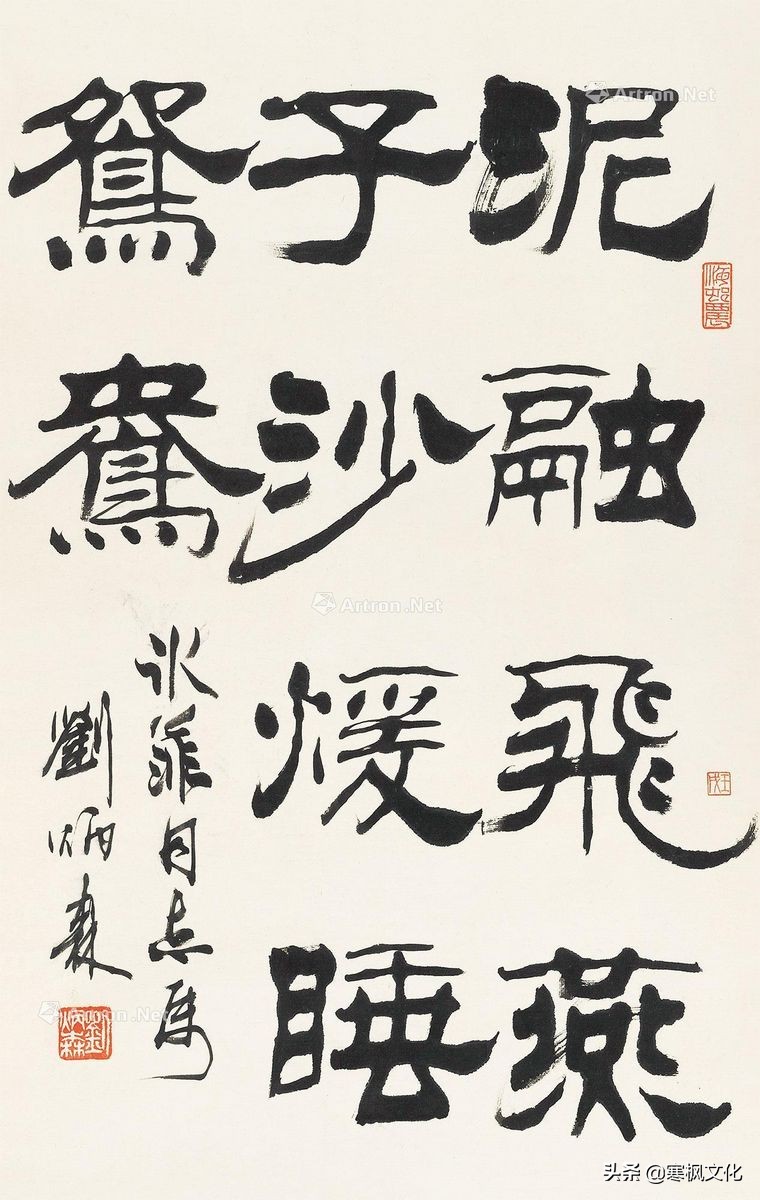 泥融飛燕
子沙煖睡
鴛鴦
同志属
劉炳森
劉炳森
壬戌
Artron.Net
Artron.Net
Artron.Net
头条 @寒枫文化